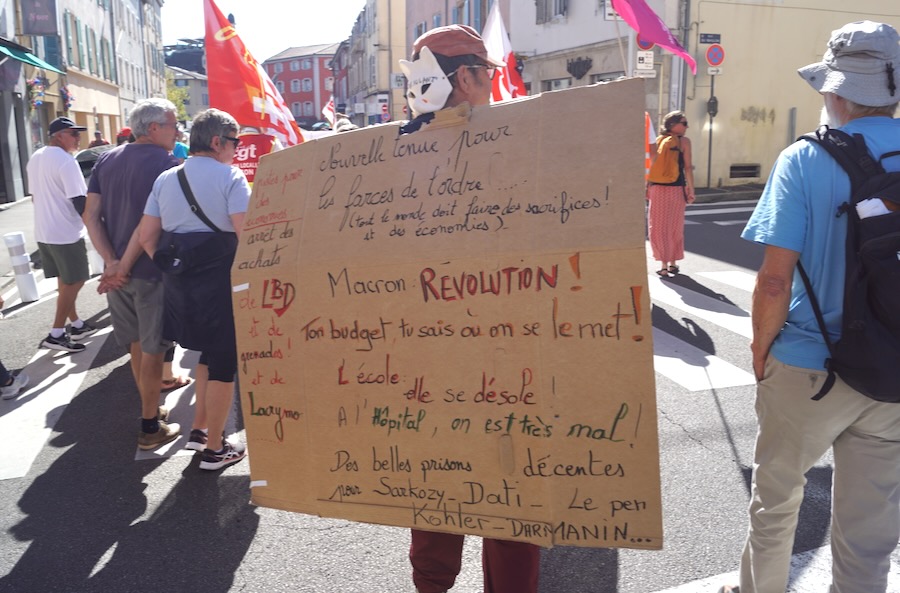 Nouvelle tenue pour
les forces de l'ordre ....
(tout le monde doit faire des sacrifices!
et des économies)
des
économies
arrêt des
achats
de LBD
et de
grenades!
et de
Lacrymo
Macron: RÉVOLUTION!
Ton budget, tu sais où on se le met!
L'école: elle se désole!
A l'Hôpital, on est très mal!
Des belles prisons décentes
pour Sarkozy - Dati - Le pen
Kohler - DARMANIN...
cgt